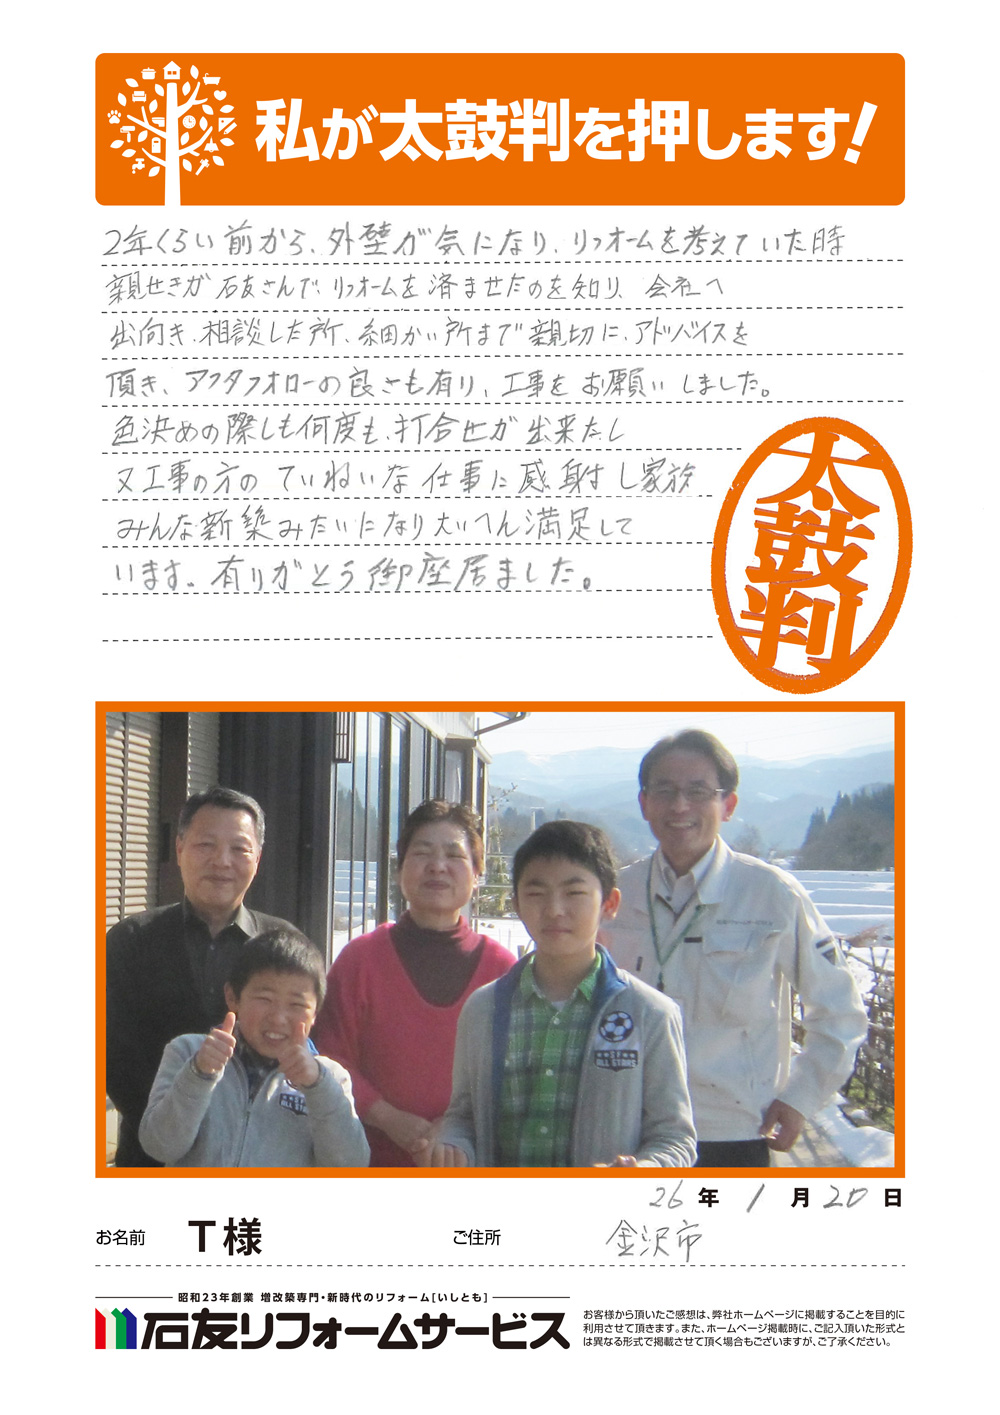 私が太鼓判を押します!
2年くらい前から、外壁が気になり、リフォームを考えていた時
親せきが石友さんで、リフォームを済ませたのを知り、会社へ
出向き、相談した所、細かい所まで親切に、アドバイスを
頂き、アフタフォローの良さも有り、工事をお願いしました。
色決めの際しも何度も、打合せが出来たし
又工事の方のていねいな仕事に感射し家族
みんな新築みたいになり大いへん満足して
います。有りがとう御座居ました。
太鼓判
ALL STARS
26年 1月20日
お名前 T様 ご住所 金沢市
昭和23年創業 増改築専門・新時代のリフォーム[いしとも]
石友リフォームサービス
お客様から頂いたご感想は、弊社ホームページに掲載することを目的に
利用させて頂きます。また、ホームページ掲載時に、ご記入頂いた形式と
は異なる形式で掲載させて頂く場合もございますが、ご了承ください。